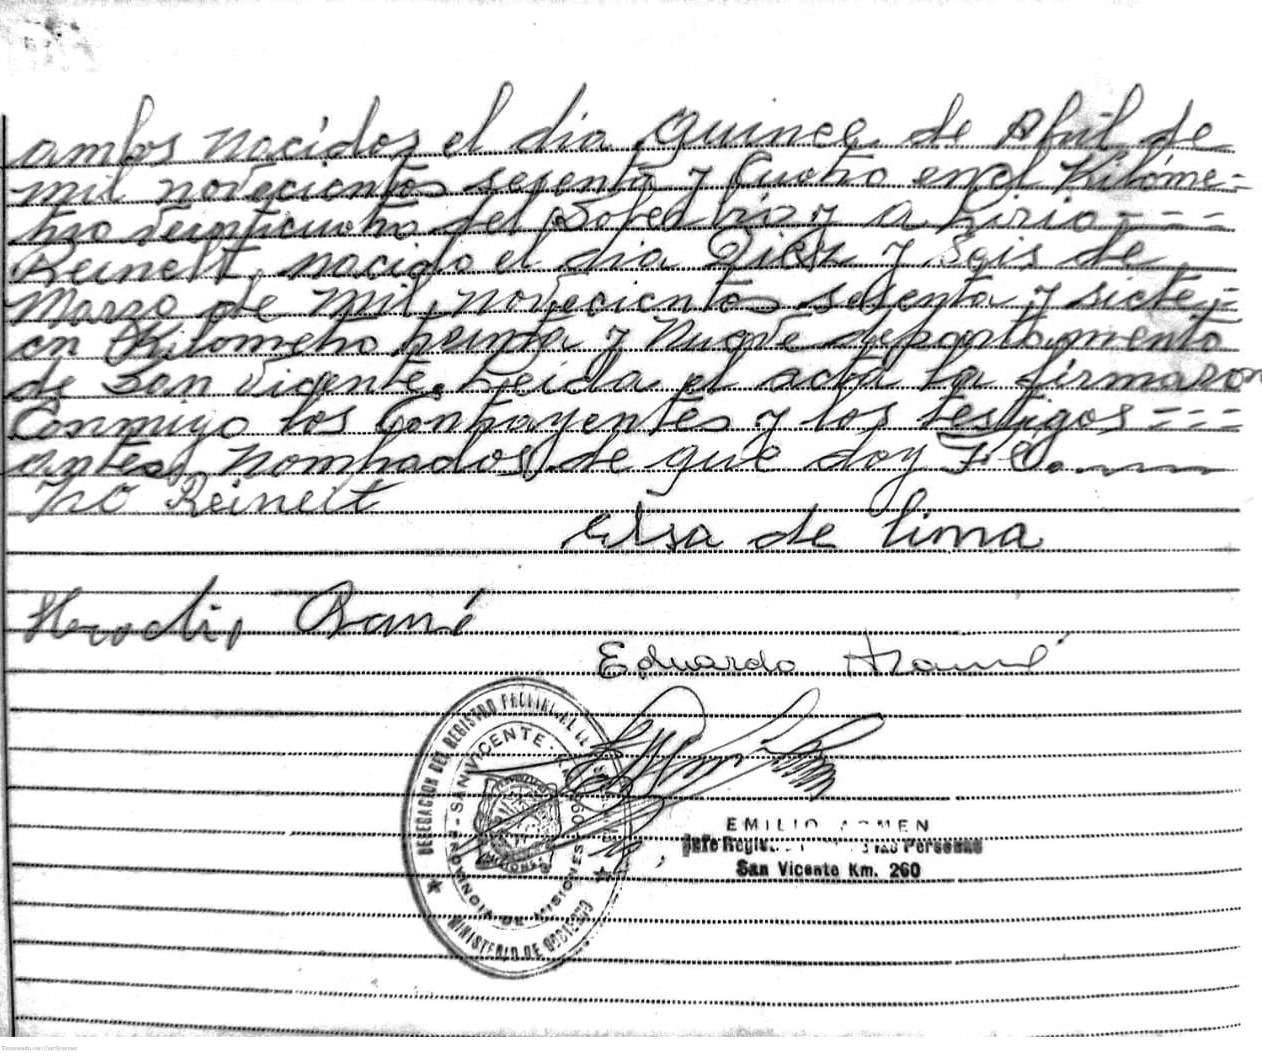 ambos nacidos el dia Quince de Abril de
mil novecientos sesenta y Cuatro en el Kilóme-
tro Veinticuatro del Soberbio y a Lirio - - - -
Reinert, nacido el dia Diez y Seis de
Marzo de mil novecientos sesenta y siete -
en Kilometro treinta y Nueve departamento
de San Vicente. Leida el acta la firmaron
Conmigo los Contrayentes y los testigos - - -
antes nombrados de que doy Fé.
Ivo Reinert
Elsa de lima
Eduardo
DELEGACION DEL REGISTRO PROVINCIAL DE
SAN VICENTE
PROVINCIA DE MISIONES
MINISTERIO DE GOBIERNO
EMILIO ARMEN
Jefe Registro las Personas
San Vicente Km. 260
Escaneado con CamScanner